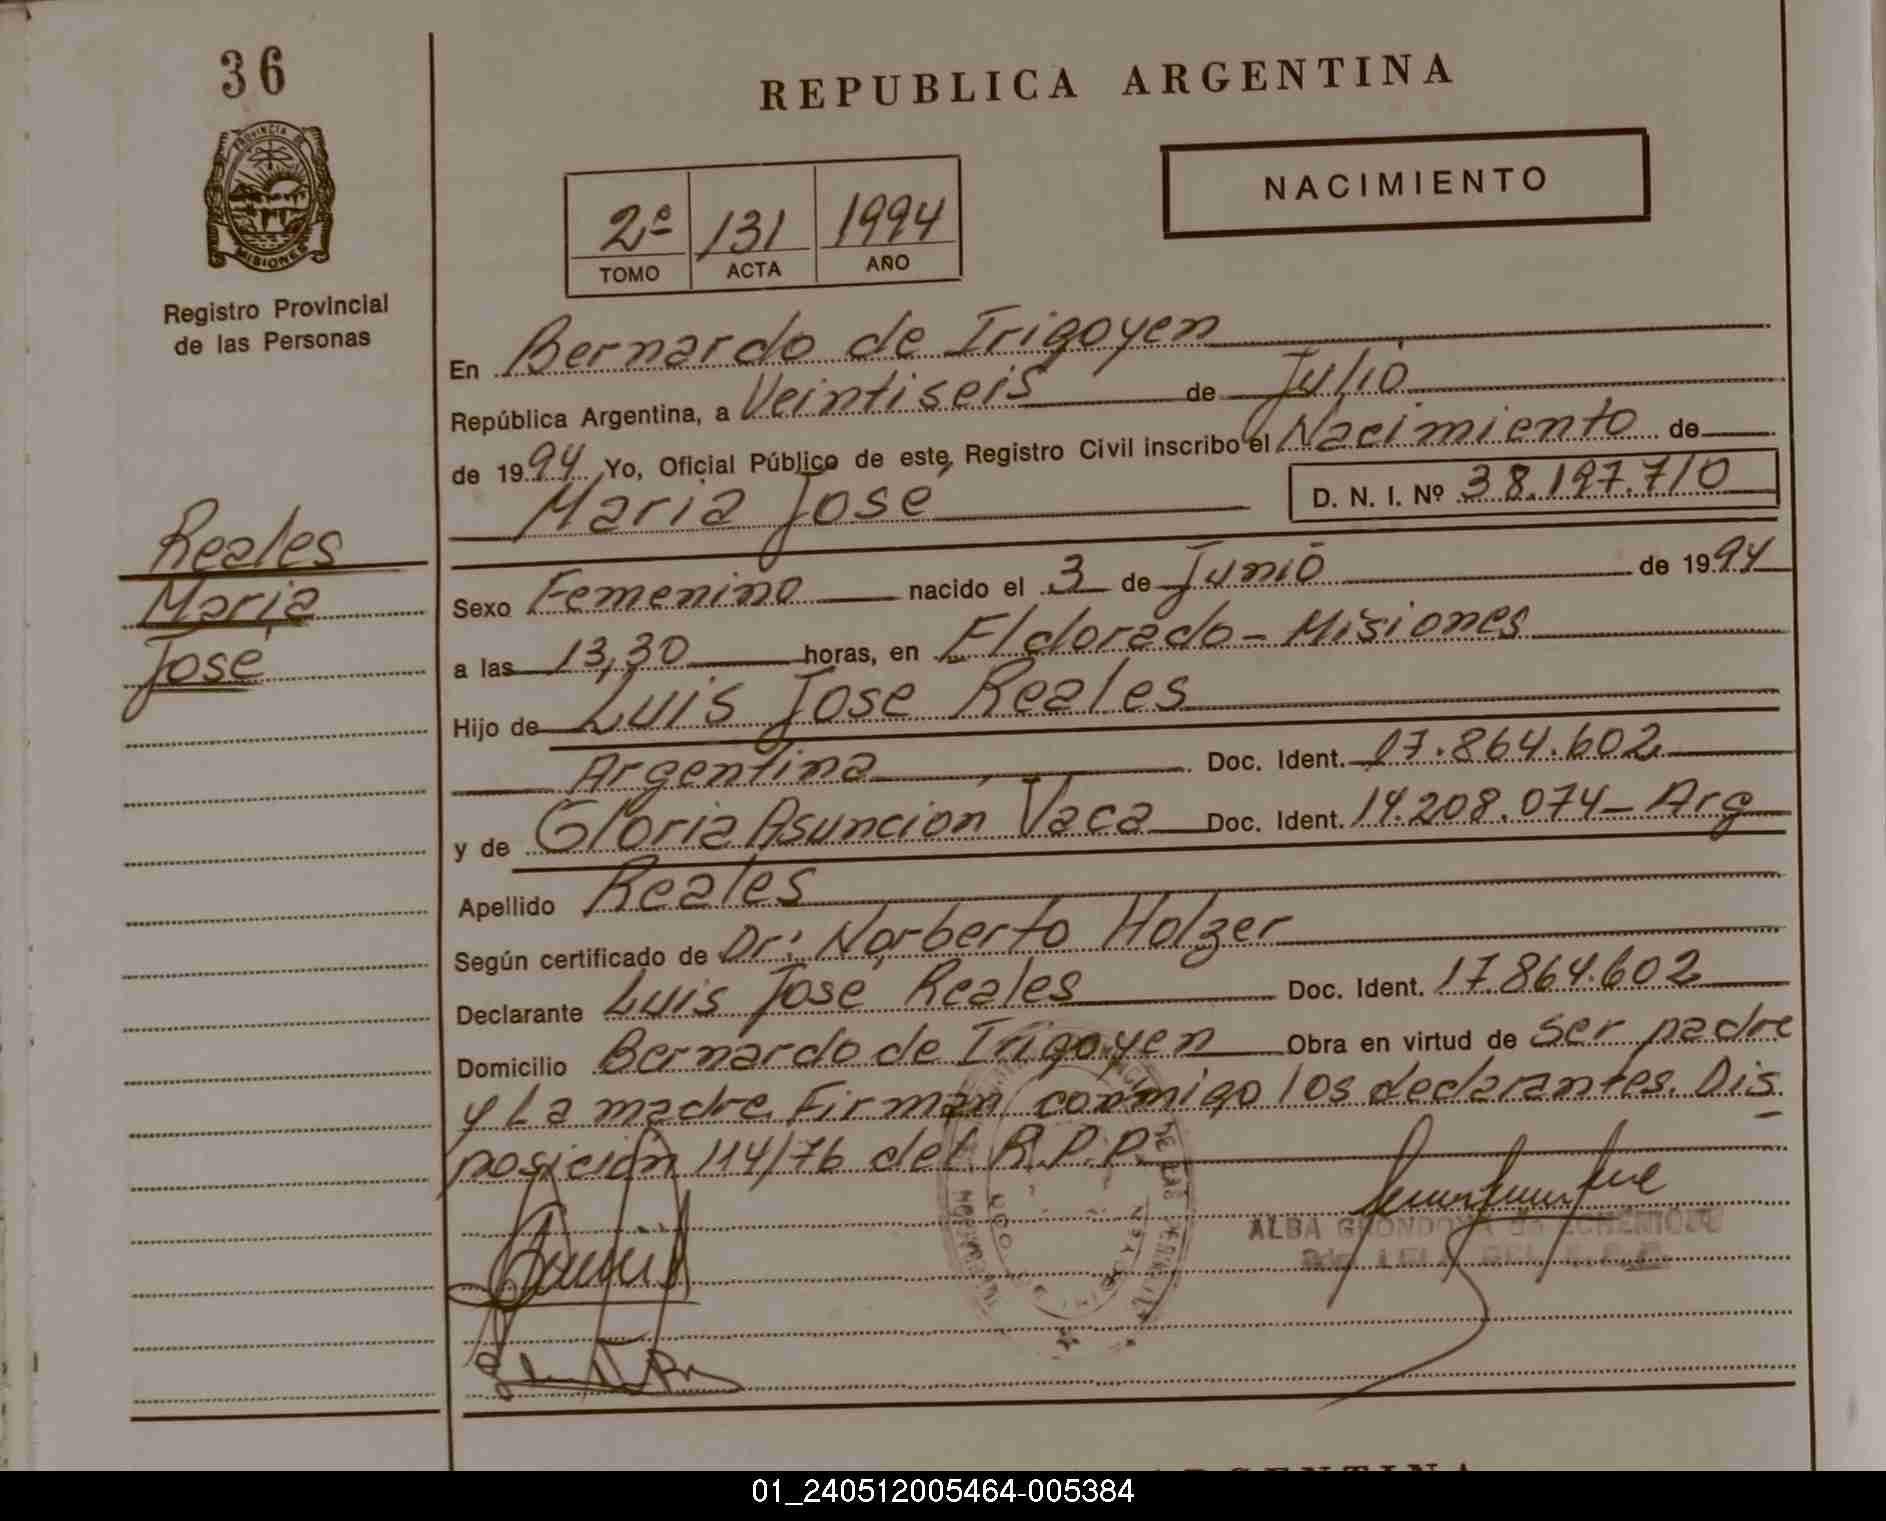 36
REPUBLICA ARGENTINA
PROVINCIA DE
MISIONES
Registro Provincial
de las Personas
NACIMIENTO
2º 131 1994
TOMO ACTA AÑO
En Bernardo de Irigoyen
República Argentina, a Veintiseis de Julio
de 1994 Yo, Oficial Público de este Registro Civil inscribo el Nacimiento de
María José D. N. I. Nº 38.197.710
Reales
María
José
Sexo Femenino nacido el 3 de Junio de 1994
a las 13,30 horas, en Eldorado - Misiones
Hijo de Luis José Reales
Argentina Doc. Ident. 17.864.602
y de Gloria Asunción Vaca Doc. Ident. 14.208.074 - Arg
Apellido Reales
Según certificado de Dr: Norberto Holzer
Declarante Luis José Reales Doc. Ident. 17.864.602
Domicilio Bernardo de Irigoyen Obra en virtud de ser padre
y La madre. Firman conmigo los declarantes. Dis
posición 114/76 del R.P.P.
ALBA GRONDONA DE
ARGENTINA
01_240512005464-005384